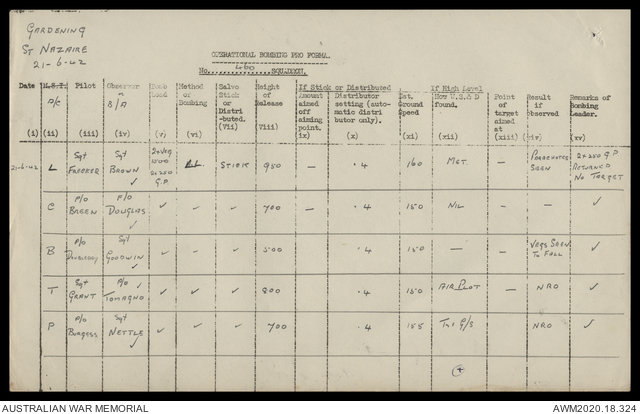 GARDENING
ST NAZAIRE
21-6-42
OPERATIONAL BOMBING PRO FORMA.
No. 460 SQUADRON.
Date A/C Pilot Observer B/A Bomb Load Method or Bombing Salvo Stick or Distri-buted. Height of Release If Stick or Distributed Amount aimed off aiming point. Distributor setting (auto-matic distri butor only). Int. Ground Speed If High Level How W.S.&D found. Point of target aimed at Result if observed Remarks of Bombing Leader.
(i) (ii) (iii) (iv) (v) (vi) (vii) (viii) (ix) (x) (xi) (xii) (xiii) (xiv) (xv)
21-6-42 L Sgt FREEKER Sgt BROWN ✓ 1500 2x250 G.P. STICK 950 — .4 160 MET. — SEEN 2x250 G.P RETURNED NO TARGET
C P/O BREEN F/O DOUGLAS ✓ ✓ ✓ ✓ 700 — .4 150 NIL — — ✓
B P/O Sgt GOODWIN ✓ ✓ ✓ ✓ 500 .4 150 — — VEGS SEEN TO FALL ✓
T Sgt GRANT P/O ✓ ✓ ✓ ✓ 800 .4 150 AIR PLOT — NRO ✓
P P/O BURGESS Sgt NETTLE ✓ ✓ ✓ ✓ 700 .4 155 G/S NRO ✓
AUSTRALIAN WAR MEMORIAL
AWM2020.18.324